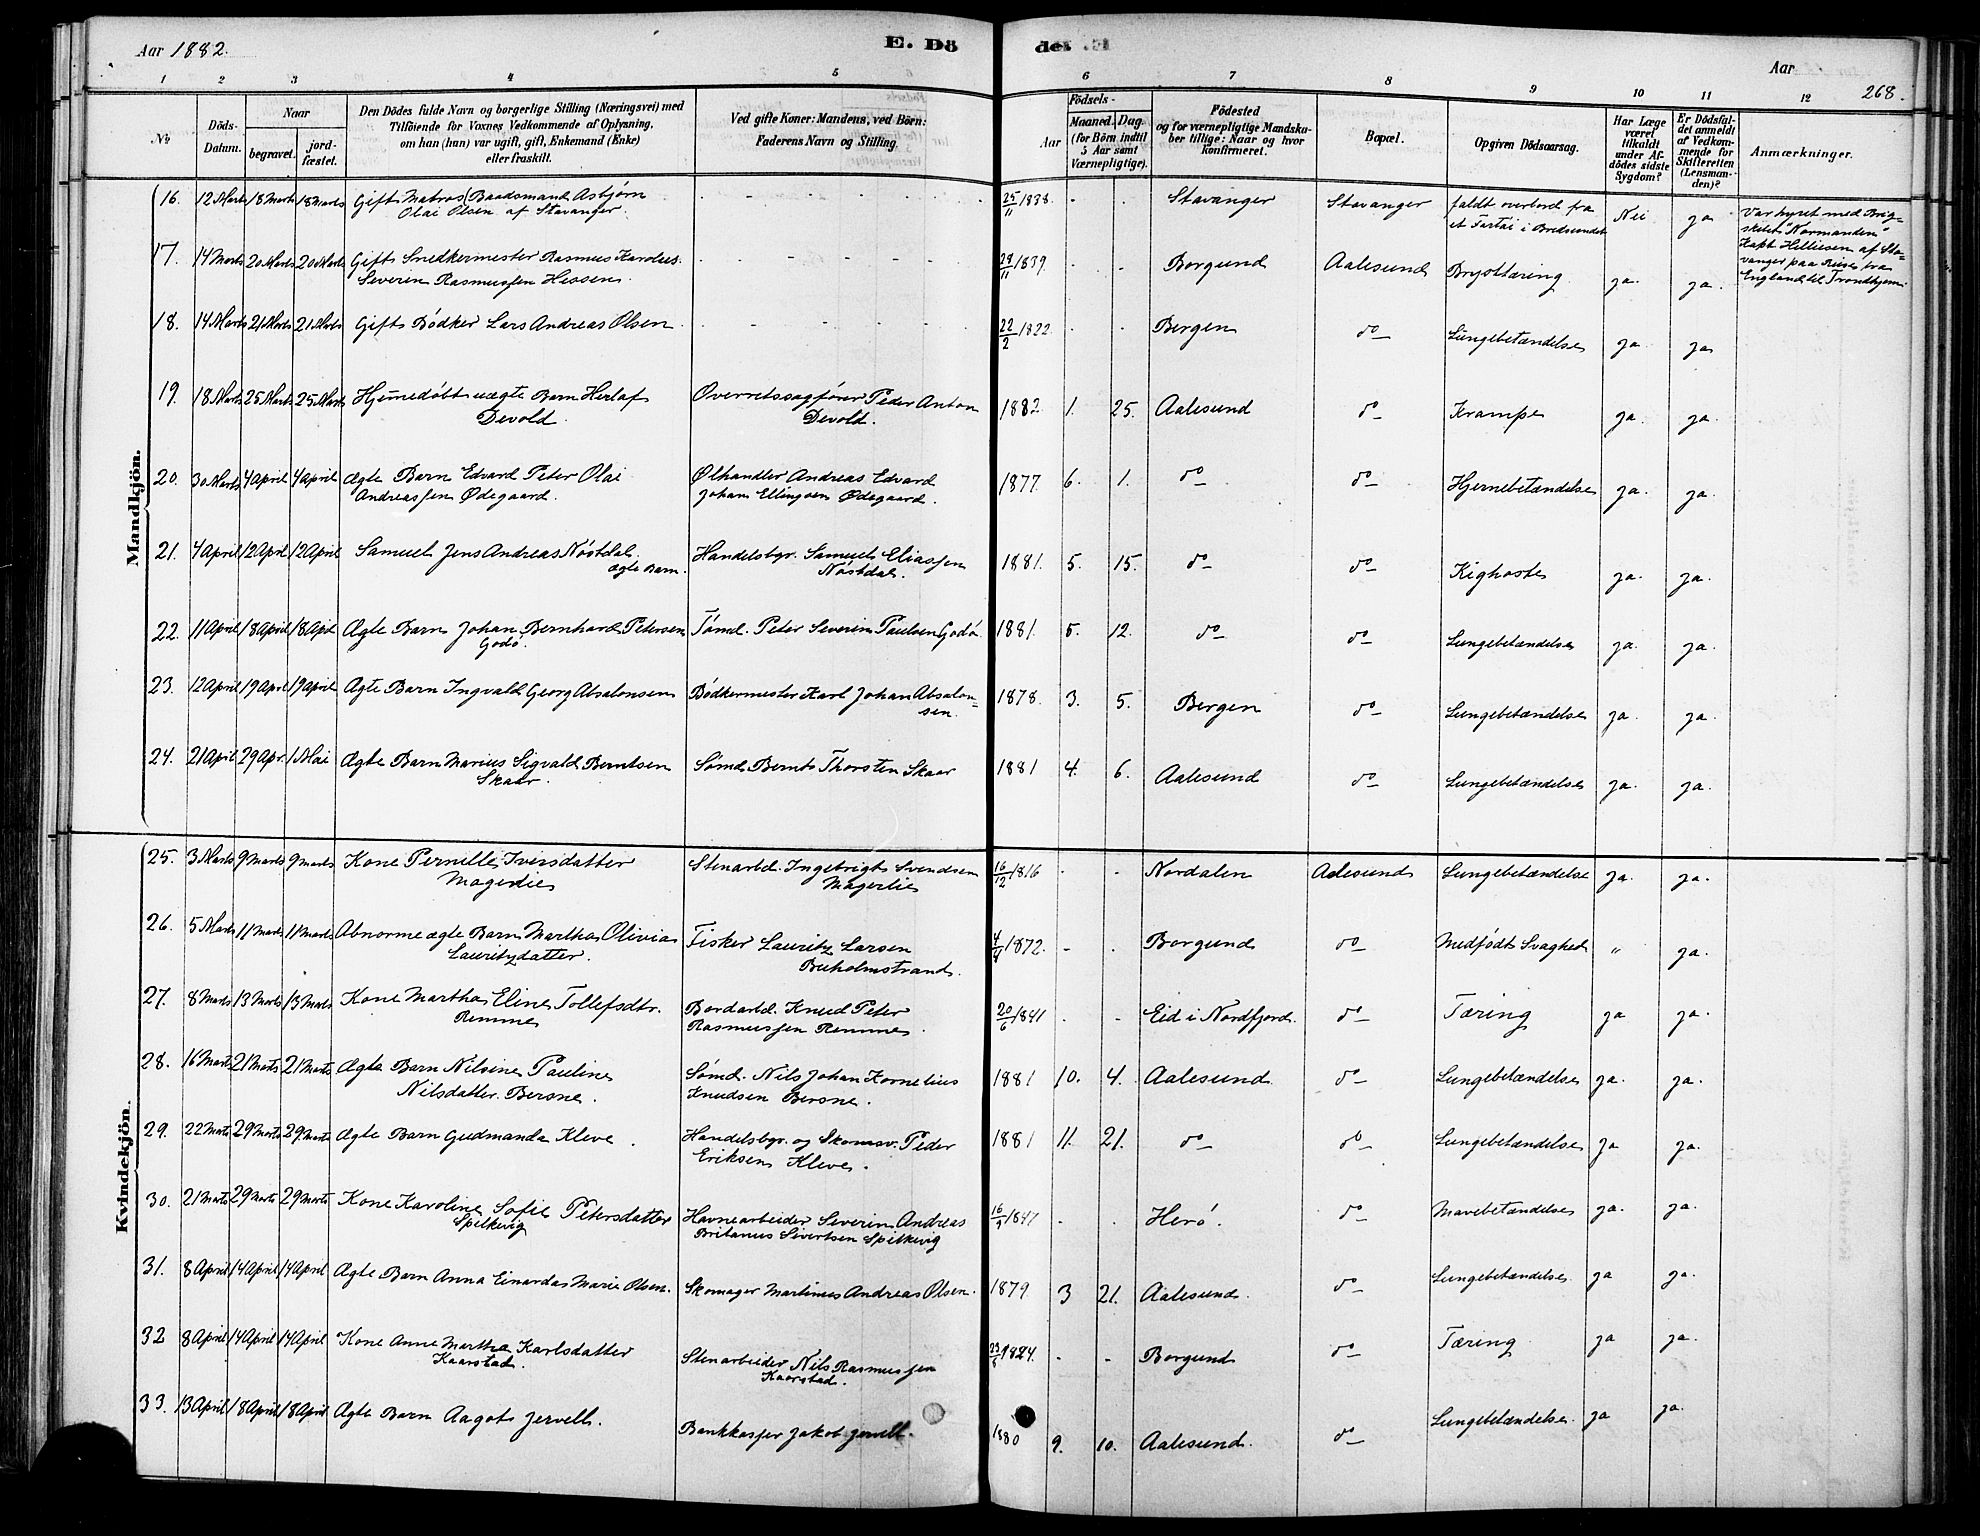 Aar 1882.
E. Dö
de .E
Aar
268.
1 2 3 4 5 6 7 8 9 10 11 12
No
Döds-Datum.
Naar
begravet.
jord-fæstet.
Den Dödes fulde Navn og borgerlige Stilling (Næringsvei) med
Tilföiende for Voxnes Vedkommende af Oplysning,
om han (hun) var ugift, gift, Enkemand (Enke)
eller fraskilt.
Ved gifte Koner: Mandens, ved Börn:
Faderens Navn og Stilling.
Födsels-
Aar
Maaned. Dag.
(for Börn indtil
5 Aar samt
Værnepligtige).
Födested
og for værnepligtige Mandska-
ber tillige: Naar og hvor
konfirmeret.
Bopæl.
Opgiven Dödsaarsag.
Har Læge
været
tilkaldt
under Af-
dödes sidste
Sygdom?
Er Dödsfal-
det anmeldt
af Vedkom-
mende for
Skifteretten
(Lensman-
den)?
Anmærkninger.
Mandkjön.
16. 12 Marts 18 Marts 18 Marts Gift Matros (Baadsmand Asbjørn - - - - - 25/11 1838. - - Stavanger Stavanger faldt overbord fra Nei ja Var hyret med Brig-
Olai Olsen af Stavanger. et Fartøi i Bredsundet skibet "Normanden"
Kapt. Hilliesen af Sta-
vanger paa Reise fra
England til Trondhjem
17. 14 Marts 20 Marts 20 Marts Gift Snedkermester Rasmus Karolus - - - - - 29/11 1839. - - Borgund Aalesund Brysttæring ja. ja.
Severin Rasmussen Hessen.
18. 14 Marts 21 Marts 21 Marts Gift Bødker Lars Andreas Olsen. - - - - - 22/2 1822. - - Bergen do Lungebetændelse ja. ja
19. 18 Marts 25 Marts 25 Marts Hjemmedøbt uægte Barn Herlof Overretssagfører Peder Anton 1882. 1. 25. Aalesund do Krampe ja. ja.
Devold. Devold.
20. 30 Marts 4 April 4 April Ægte Barn Edvard Peter Olai Ølhandler Andreas Edvard 1877. 6. 1. do do Hjernebetændelse ja. ja.
Andreassen Ødegaard. Johan Ellingsen Ødegaard.
21. 4 April 12 April 12 April Samuel Jens Andreas Nøstdal. Handelsbgr. Samuel Eliassen 1881. 5. 15. do do Kighoste ja. ja.
ægte Barn. Nøstdal.
22. 11 April 18 April 18 April Ægte Barn Johan Bernhard Petersen Tømd. Peter Severin Paulsen Godø. 1881. 5. 12. do do Lungebetændelse ja. ja.
Godø.
23. 12 April 19 April 19 April Ægte Barn Ingvald Georg Absalonsen Bødkermester Karl Johan Absalon- 1878. 3. 5. Bergen do Lungebetændelse ja. ja.
sen.
24. 21 April 29 Apr. 1 Mai Ægte Barn Marius Sigvald Berntsen Sømd. Bernt Thorsten Skaar 1881 4. 6. Aalesund do Lungebetændelse ja. ja.
Skaar.
Kvindekjön.
25. 3 Marts 9 Marts 9 Marts Kone Pernille Iversdatter Stenarbd. Ingebrigt Svendsen 16/12 1816 - - Nordalen Aalesund Lungebetændelse ja. ja.
Magerlie Magerlie
26. 5 Marts 11 Marts 11 Marts Abnorme ægte Barn Martha Olivia Fisker Lauritz Larsen 4/4 1872. - - Borgund do Medfødt Svaghed " ja.
Lauritzdatter. Buholmstrand.
27. 8 Marts 13 Marts 13 Marts Kone Martha Eline Tollefsdtr. Bordarbd. Knud Peter 20/6 1841 - - Eid i Nordfjord. do Tæring ja ja.
Remme Rasmussen Remme.
28. 16 Marts 21 Marts 21 Marts Ægte Barn Nilsine Pauline Sømd. Nils Johan Kornelius 1881 10. 4. Aalesund. do Lungebetændelse ja. ja.
Nilsdatter Bersne. Knudsen Bersne.
29. 22 Marts 29 Marts 29 Marts Ægte Barn Gudmanda Kleve. Handelsbgr. og Skomsv. Peder 1881 11. 21. do do Lungebetændelse ja ja.
Eriksen Kleve.
30. 21 Marts 29 Marts 29 Marts Kone Karoline Sofie Petersdatter Havnearbeider Severin Andreas 16/9 1847 - - Herø. do Mavebetændelse ja. ja.
Spilkevig Britanus Sivertsen Spilkevig
31. 8 April 14 April 14 April Ægte Barn Anna Einarda Marie Olsen. Skomager Martinus Andreas Olsen. 1879. 3 21. Aalesund. do Lungebetændelse. ja ja.
32 8 April 14 April 14 April Kone Anne Martha Karlsdatter Stenarbeider Nils Rasmussen 23/6 1824. - - Borgund do Tæring. ja ja.
Kaarstad. Kaarstad.
33. 13 April 18 April 18 April Ægte Barn Aagot Jervell. Bankkasser Jakob Jervell. 1880 9. 10. Aalesund. do Lungebetændelse. ja ja.